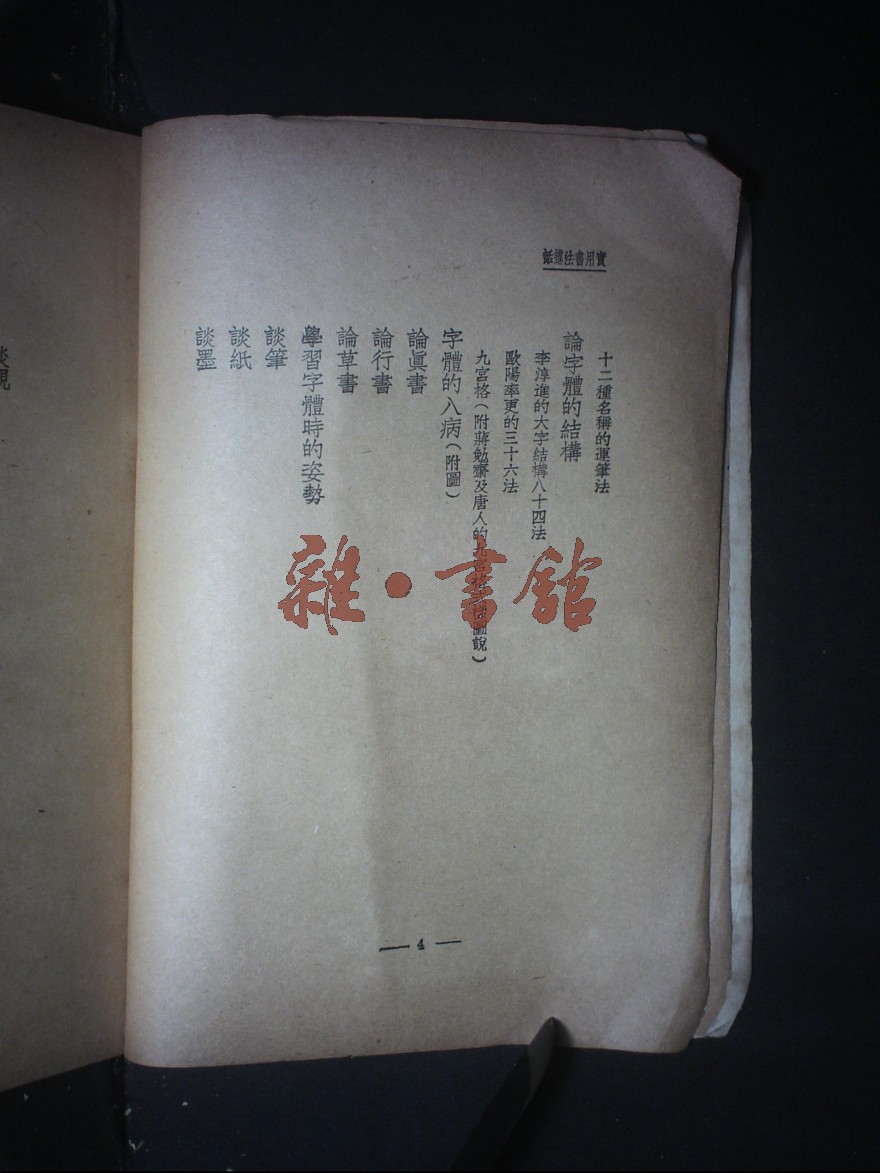 實用書法講話
十二種名稱的運筆法
論字體的結構
李淳進的大字結構八十四法
歐陽率更的三十六法
九宮格(附蔣勉齋及唐人的九宮格式樣圖說)
字體的八病(附圖)
論眞書
論行書
論草書
學習字體時的姿勢
談筆
談紙
談墨
雜·書館
— 4 —